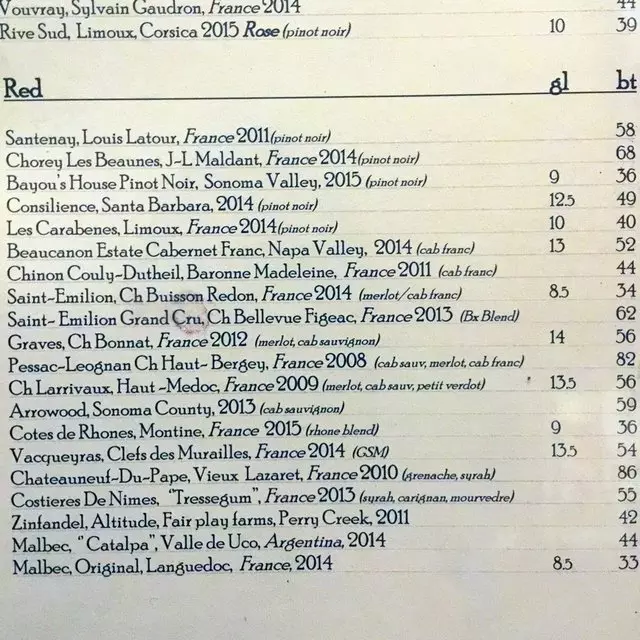 Vouvray, Sylvain Gaudron, France 2014 44
Rive Sud, Limoux, Corsica 2015 Rose (pinot noir) 10 39
Red gl bt
Santenay, Louis Latour, France 2011 (pinot noir) 58
Chorey Les Beaunes, J-L Maldant, France 2014 (pinot noir) 68
Bayou's House Pinot Noir, Sonoma Valley, 2015 (pinot noir) 9 36
Consilience, Santa Barbara, 2014 (pinot noir) 12.5 49
Les Carabenes, Limoux, France 2014 (pinot noir) 10 40
Beaucanon Estate Cabernet Franc, Napa Valley, 2014 (cab franc) 13 52
Chinon Couly-Dutheil, Baronne Madeleine, France 2011 (cab franc) 44
Saint-Emilion, Ch Buisson Redon, France 2014 (merlot/cab franc) 8.5 34
Saint- Emilion Grand Cru, Ch Bellevue Figeac, France 2013 (Bx Blend) 62
Graves, Ch Bonnat, France 2012 (merlot, cab sauvignon) 14 56
Pessac-Leognan Ch Haut- Bergey, France 2008 (cab sauv, merlot, cab franc) 82
Ch Larrivaux, Haut -Medoc, France 2009 (merlot, cab sauv, petit verdot) 13.5 56
Arrowood, Sonoma County, 2013 (cab sauvignon) 59
Cotes de Rhones, Montine, France 2015 (rhone blend) 9 36
Vacqueyras, Clefs des Murailles, France 2014 (GSM) 13.5 54
Chateauneuf-Du-Pape, Vieux Lazaret, France 2010 (grenache, syrah) 86
Costieres De Nimes, "Tressegum", France 2013 (syrah, carignan, mourvedre) 55
Zinfandel, Altitude, Fair play farms, Perry Creek, 2011 42
Malbec, "Catalpa", Valle de Uco, Argentina, 2014 44
Malbec, Original, Languedoc, France, 2014 8.5 33